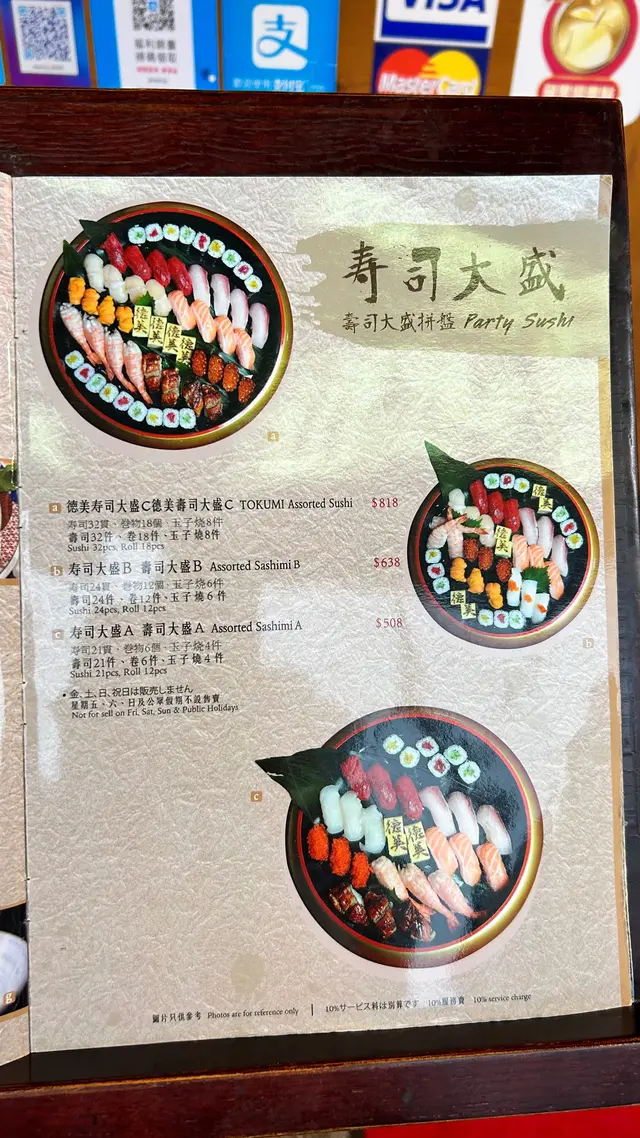 VISA
MasterCard
寿司大盛
壽司大盛拼盤 Party Sushi
a
a 徳美寿司大盛C德美壽司大盛C TOKUMI Assorted Sushi $818
寿司32貫、巻物18個、玉子焼8件
壽司32件、卷18件、玉子燒8件
Sushi 32pcs, Roll 18pcs
b 寿司大盛B 壽司大盛B Assorted Sashimi B $638
寿司24貫、巻物12個、玉子焼6件
壽司24件、卷12件、玉子燒6件
Sushi 24pcs, Roll 12pcs
c 寿司大盛A 壽司大盛A Assorted Sashimi A $508
寿司21貫、巻物6個、玉子焼4件
壽司21件、卷6件、玉子燒4件
Sushi 21pcs, Roll 12pcs
• 金、土、日、祝日は販売しません
星期五、六、日及公眾假期不設售賣
Not for sell on Fri, Sat, Sun & Public Holidays
b
c
德美
德美
德美
德美
德美
德美
德美
德美
德美
g
圖片只供參考 Photos are for reference only | 10%サービス料は別算です 10%服務費 10% service charge